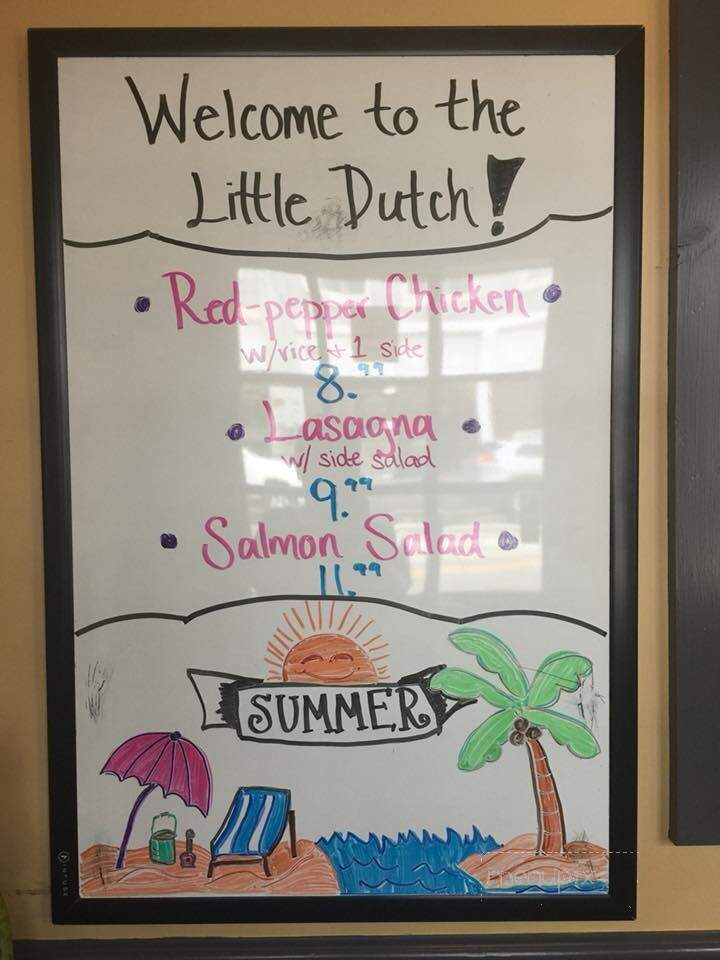 Welcome to the
Little Dutch!
• Red-pepper Chicken •
w/rice + 1 side
8.99
• Lasagna •
w/ side salad
9.99
• Salmon Salad •
11.99
SUMMER